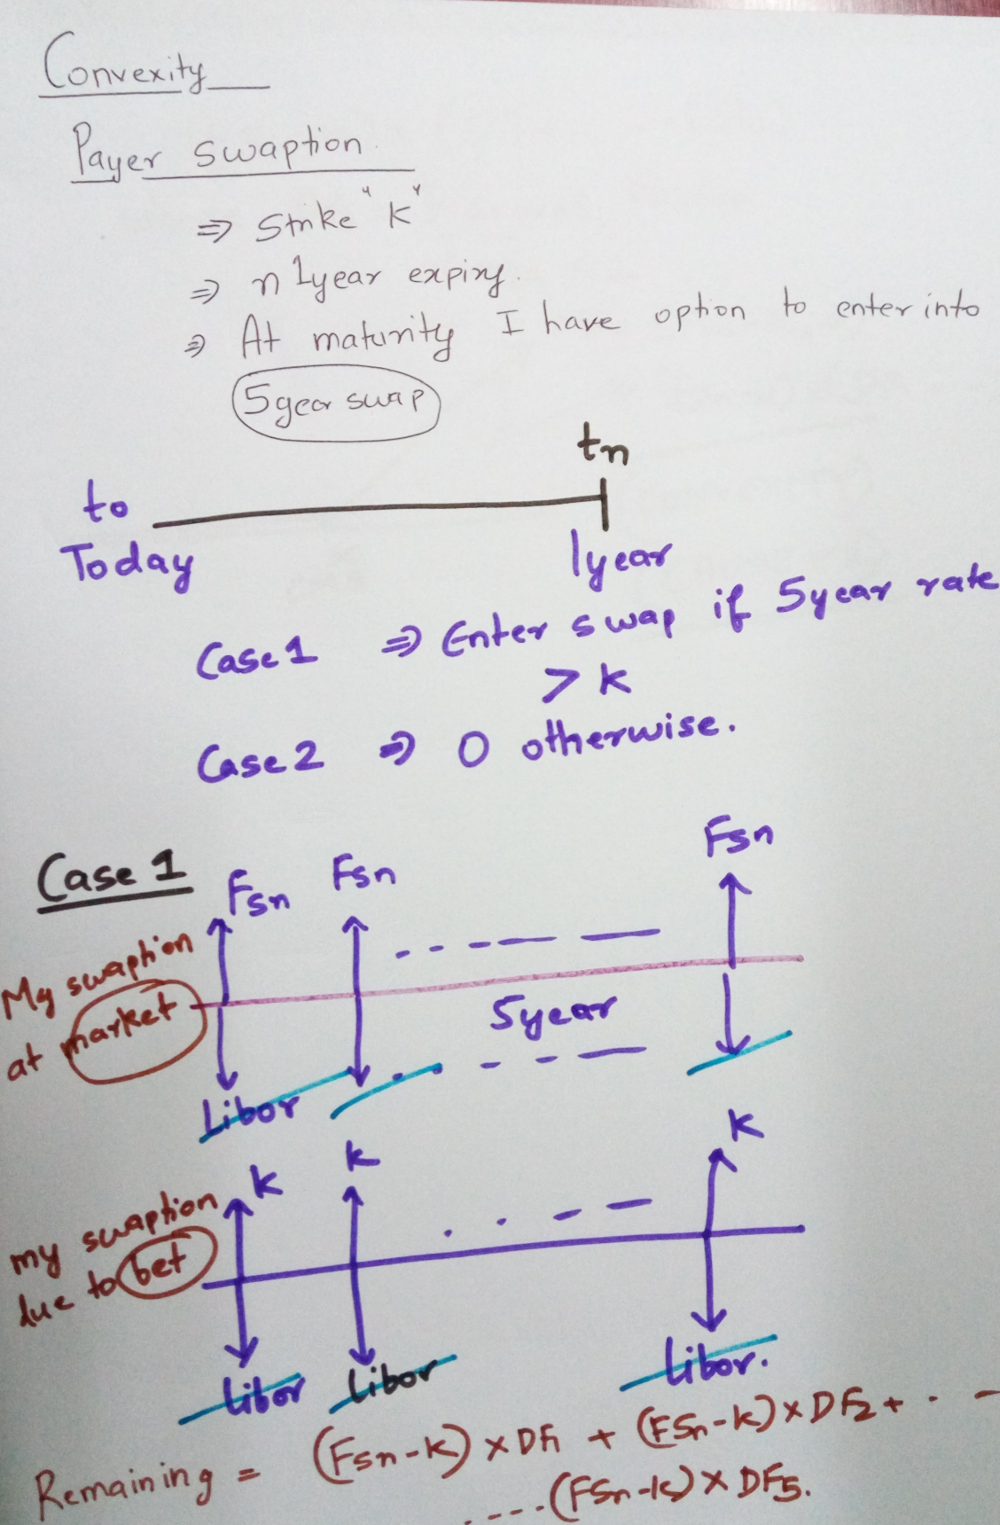 Convexity
Payer swaption
⇒ Strike "K"
⇒ n 1year expiry.
⇒ At maturity I have option to enter into
5year swap
tn
to
Today
1year
Case 1 ⇒ Enter swap if 5year rate
> K
Case 2 ⇒ 0 otherwise.
Case 1
Fsn Fsn Fsn
My swaption
at market
5year
Libor
K K K
my swaption
due to bet
Libor Libor Libor.
Remaining = (Fsn-K) x DF1 + (FSn-K) x DF2 + . -
....(FSn-K) x DF5.